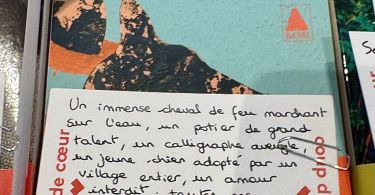 BABEL
Un immense cheval de feu marchant
sur l'eau, un potier de grand
talent, un calligraphe aveugle,
un jeune chien adopté par un
village entier, un amour
interdit
de cœur
coup d